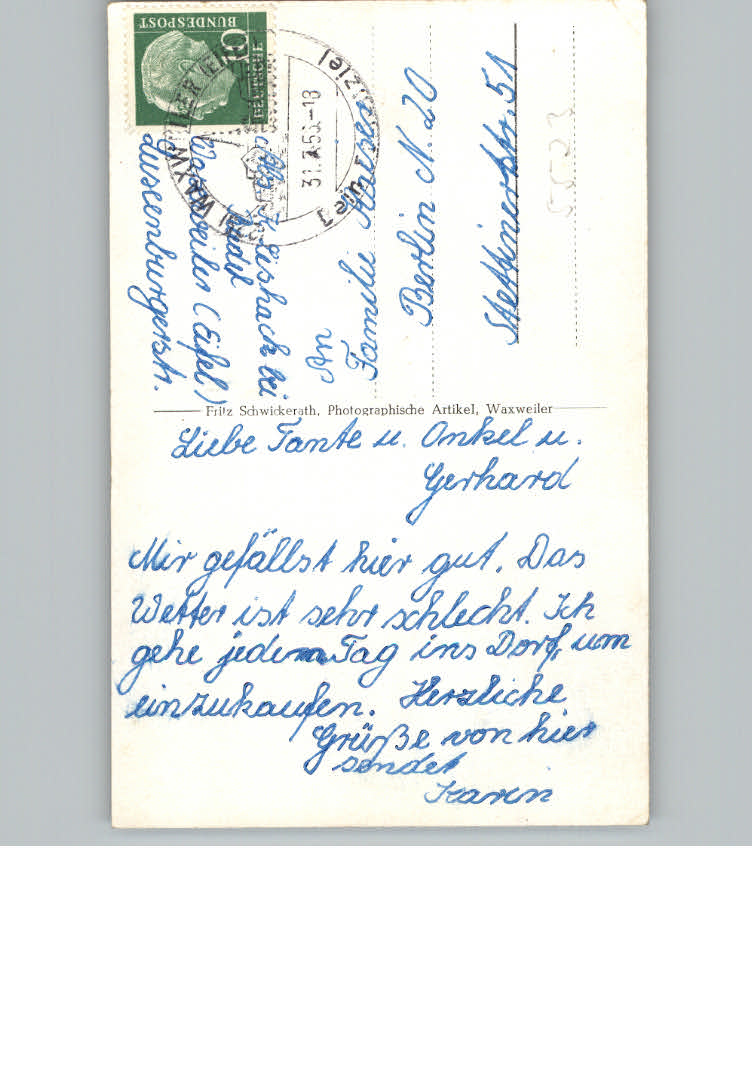 Liebe Tante u. Onkel u.
Gerhard
Mir gefällst hier gut. Das
Wetter ist sehr schlecht. Ich
gehe jeden Tag ins Dorf, um
einzukaufen. Herzliche
Grüße von hier
sendet
Karin
Fritz Schwickerath, Photographische Artikel, Waxweiler
An
Familie
Berlin N. 20
Stettinerstr. 51
bei
Waxweiler (Eifel)
Luxenburgerstr.
DEUTSCHE
BUNDESPOST
10
WAXWEILER (EIFEL)
-18
5523